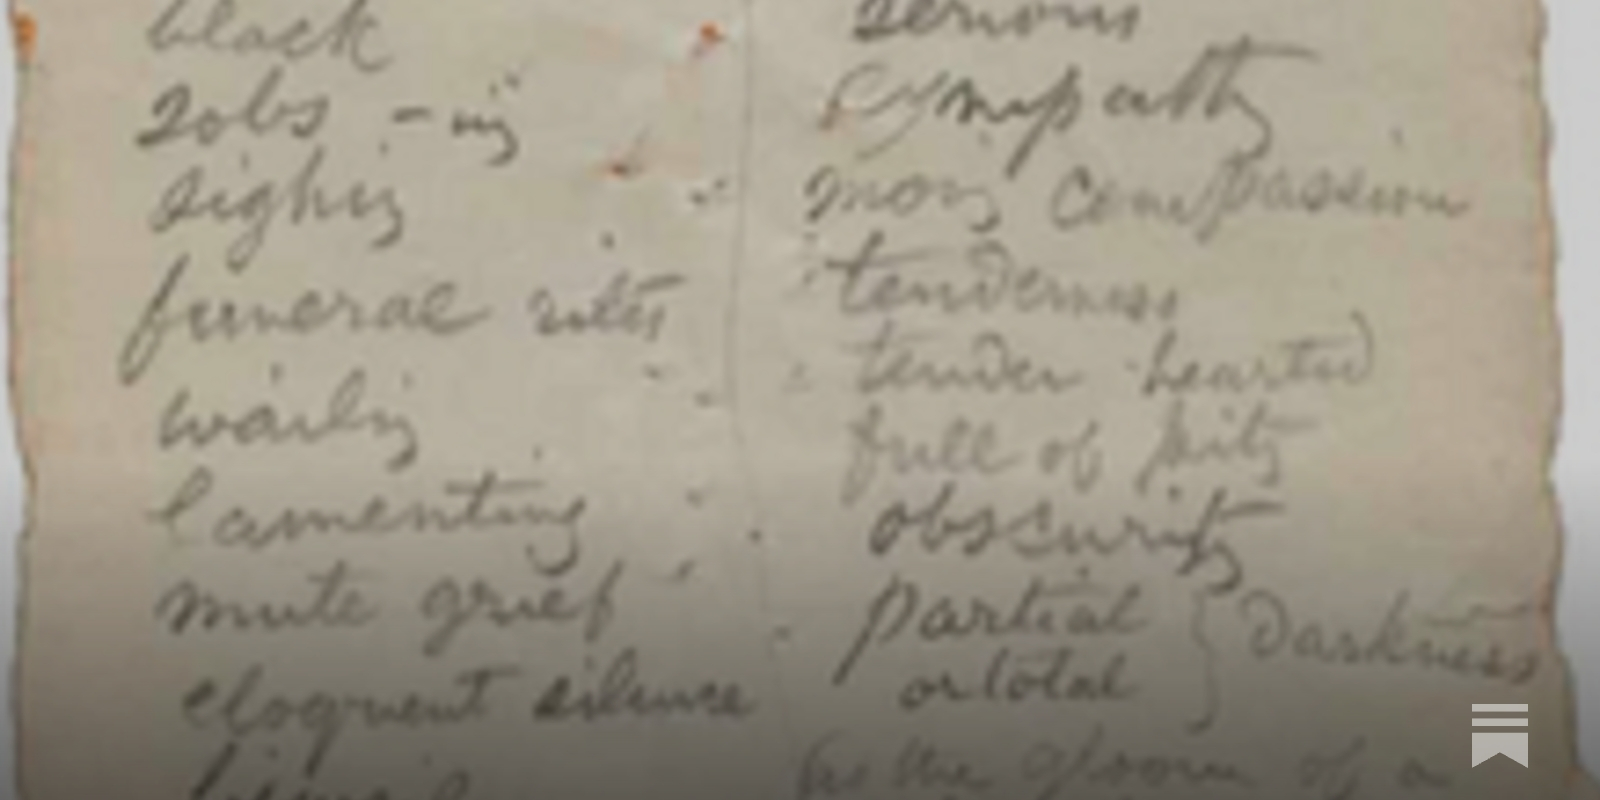 black
sobs -ing
sighing
funeral rites
wailing
lamenting
mute grief
eloquent silence
serious
sympathy
compassion
tenderness
tender hearted
full of pity
obscurity
partial
or total
} Darkness
as the gloom of a